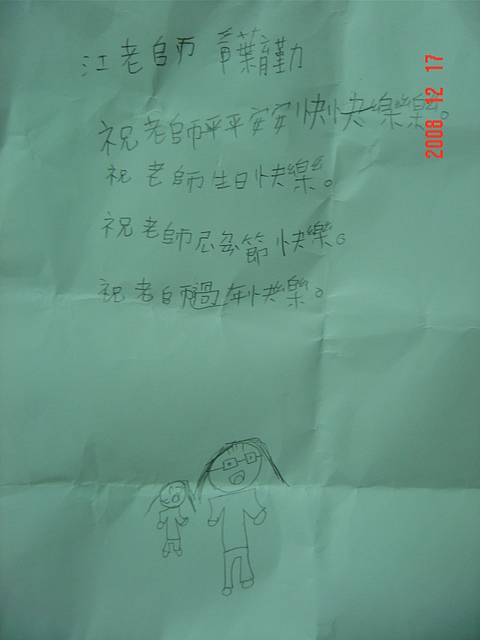 江老師
祝老師平平安安快快樂樂。
祝老師生日快樂。
祝老師忍者節快樂。
祝老師過年快樂。
2008 12 17